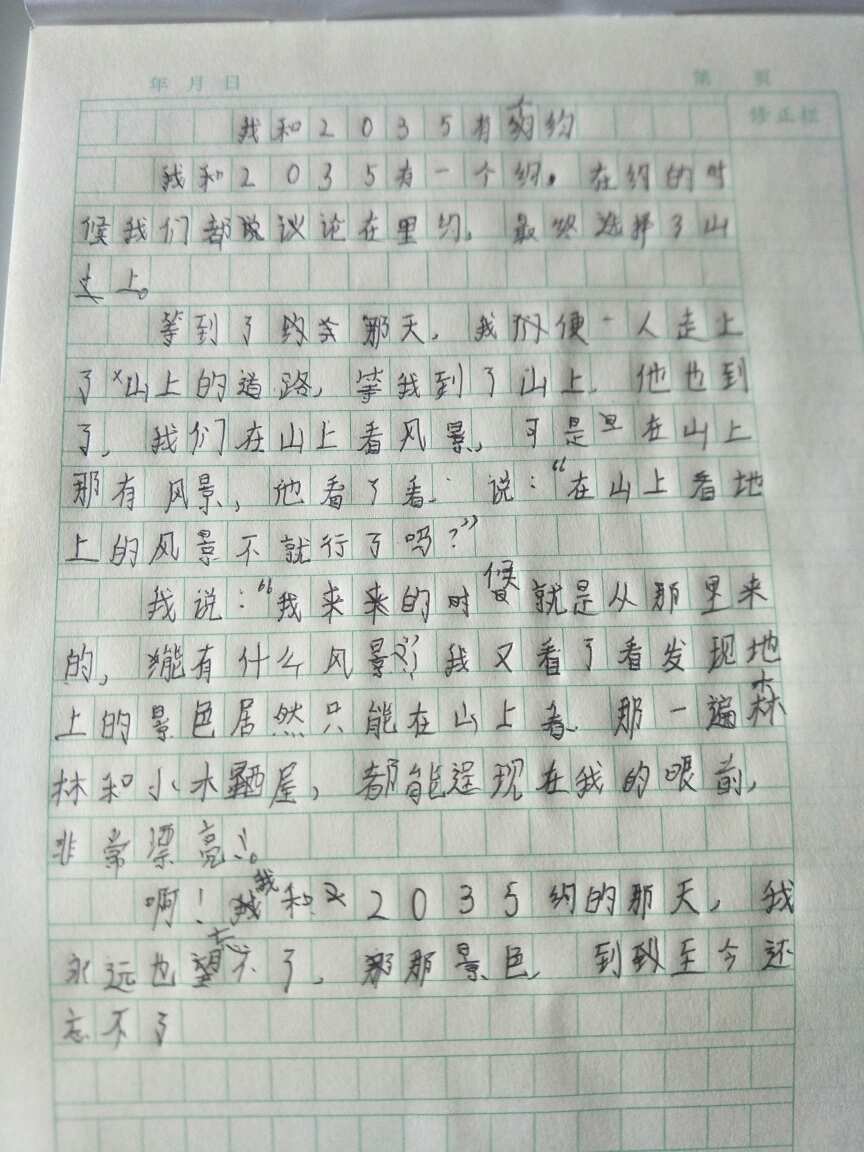 年 月 日 第 页
修正栏
我和2035有约
我和2035有一个约。在约的时
候我们都说议论在里约，最终选择了山
上。
等到了约会那天，我便一人走上
了山上的道路，等我到了山上，他也到
了，我们在山上看风景，可是在山上
那有风景，他看了看，说：“在山上看地
上的风景不就行了吗？”
我说：“我来来的时候就是从那里来
的，能有什么风景？”我又看了看发现地
上的景色居然只能在山上看，那一遍森
林和小水屋，都能逞现在我的眼前，
非常漂亮！。
啊！我和2035约的那天，我
永远也忘不了，那景色，到至今还
忘不了